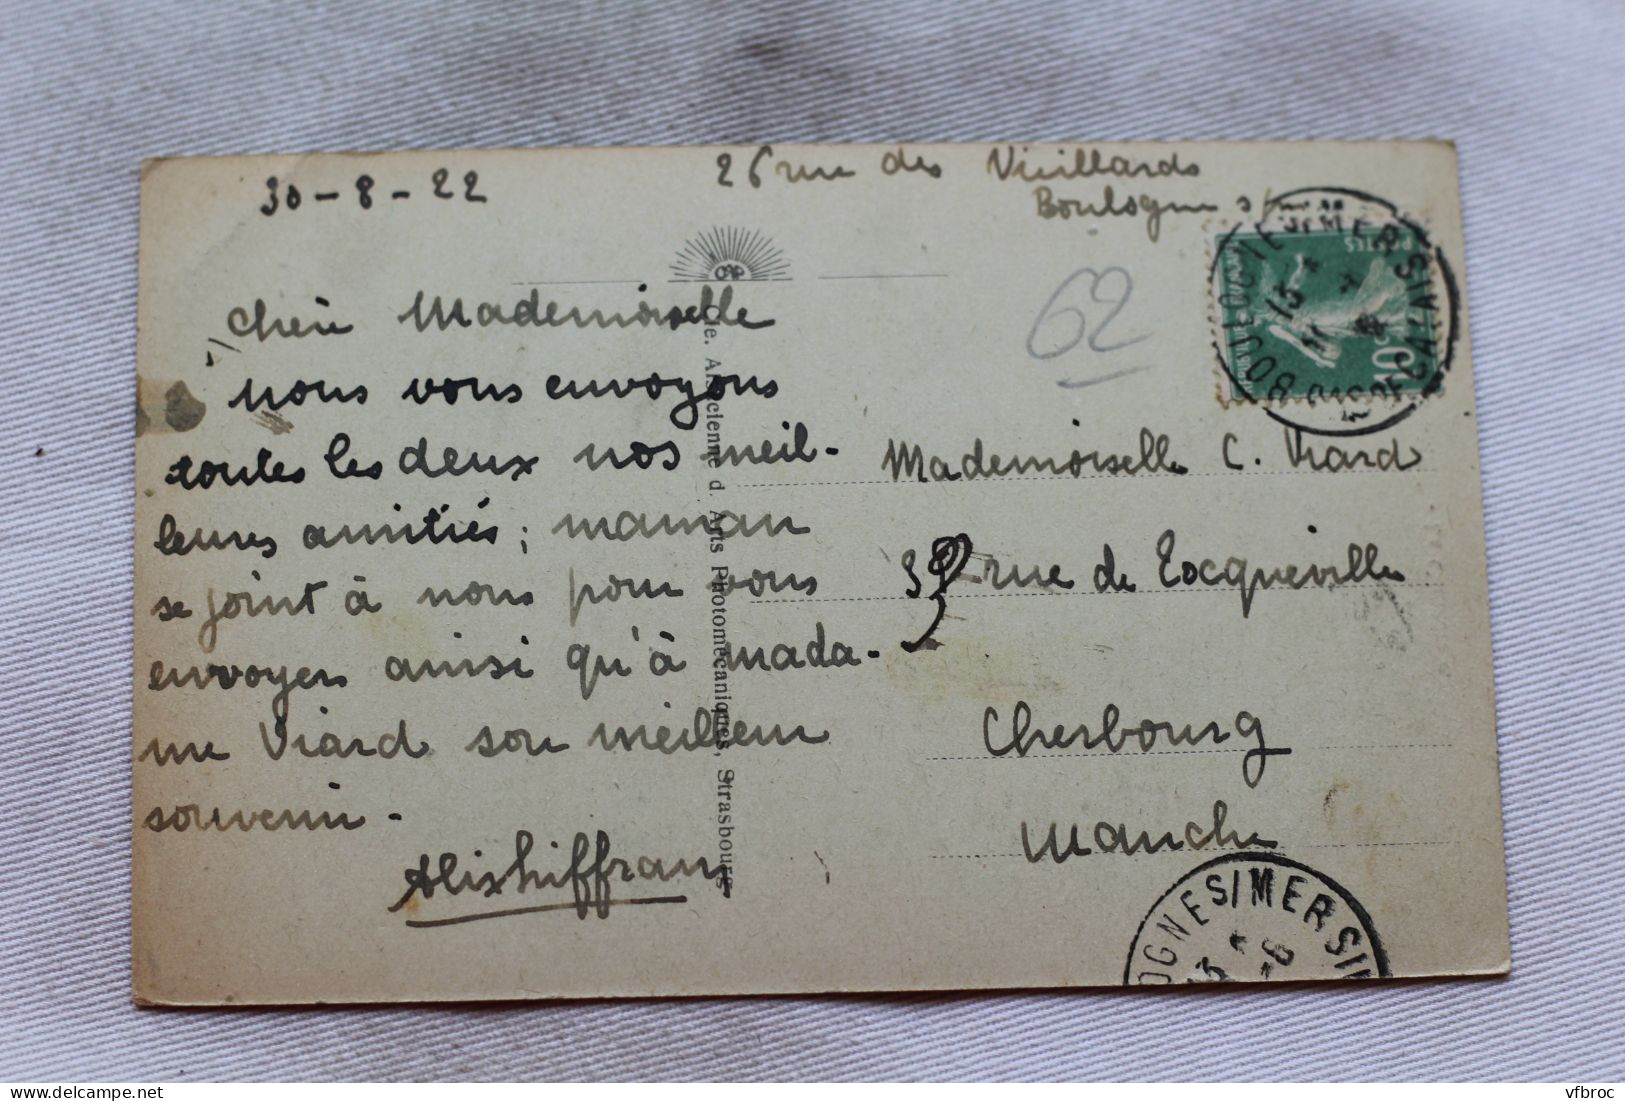 30-8-22
26 rue des Vieillards
Boulogne s/mer
Chère Mademoiselle
nous vous envoyons
toutes les deux nos meil-
leures amitiés ; maman
se joint à nous pour vous
envoyer ainsi qu'à mada-
me Viard son meilleur
souvenir -
Cie. Alsacienne d. Arts Photomécaniques, Strasbourg
62
Mademoiselle C. Viard
rue de Tocqueville
Cherbourg
Manche
POSTES
BOULOGNE S/MER
PAS DE CALAIS
OGNE S/MER
vfbroc